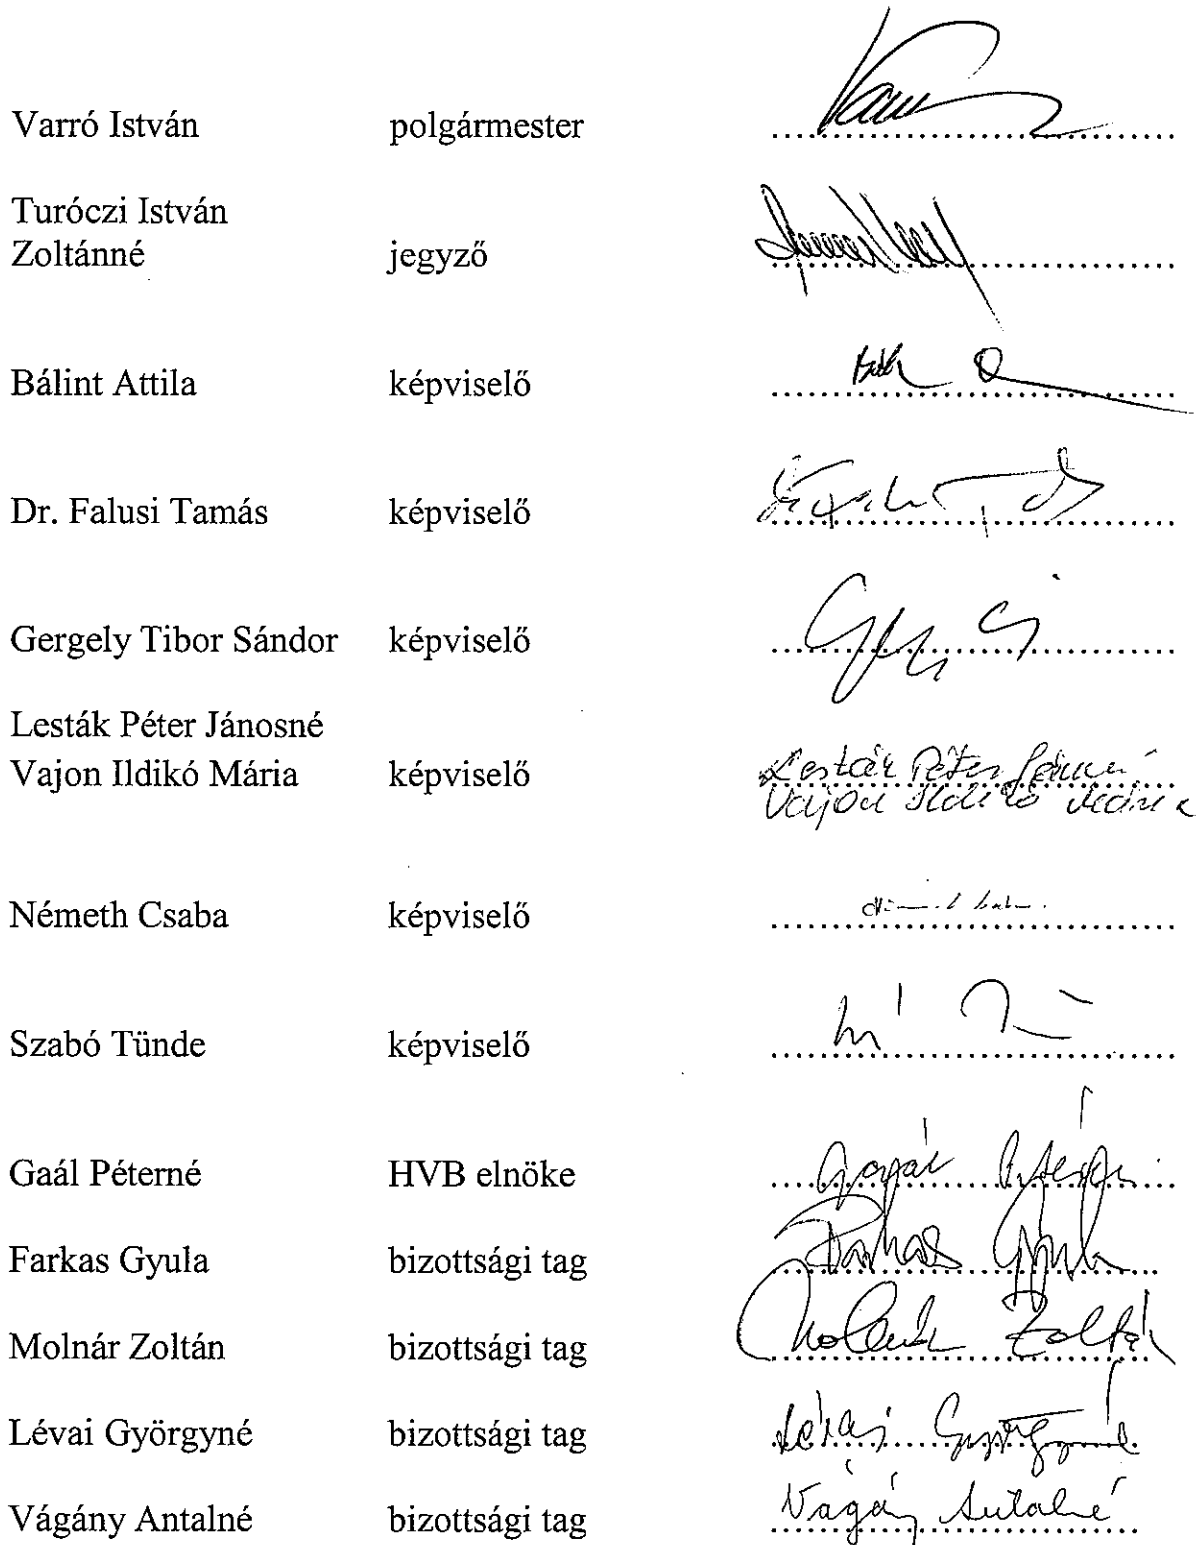 Varró István polgármester
Turóczi István
Zoltánné jegyző
Bálint Attila képviselő
Dr. Falusi Tamás képviselő
Gergely Tibor Sándor képviselő
Lesták Péter Jánosné
Vajon Ildikó Mária képviselő Lesták Péter Jánosné
Vajon Ildikó Mária
Németh Csaba képviselő
Szabó Tünde képviselő
Gaál Péterné HVB elnöke
Farkas Gyula bizottsági tag Farkas Gyula
Molnár Zoltán bizottsági tag Molnár Zoltán
Lévai Györgyné bizottsági tag Lévai Györgyné
Vágány Antalné bizottsági tag Vágány Antalné